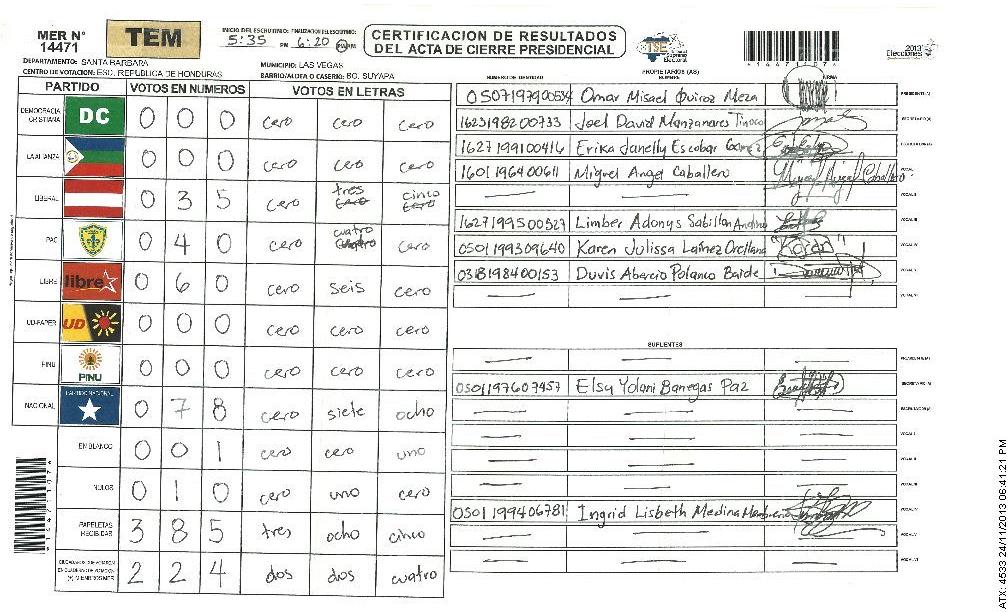 MER N° 14471
TEM
INICIO DEL ESCRUTINIO: FINALIZACION DEL ESCRUTINIO:
5:35 PM 6:20
CERTIFICACION DE RESULTADOS
DEL ACTA DE CIERRE PRESIDENCIAL
TSE
2013
Elecciones
DEPARTAMENTO: SANTA BARBARA
MUNICIPIO: LAS VEGAS
CENTRO DE VOTACION: ESC. REPUBLICA DE HONDURAS
BARRIO/ALDEA O CASERIO: BO. SUYAPA
PARTIDO VOTOS EN NUMEROS VOTOS EN LETRAS
DEMOCRACIA CRISTIANA DC 0 0 0 cero cero cero
LA ALIANZA 0 0 0 cero cero cero
LIBERAL 0 3 5 cero tres cinco
PAC 0 4 0 cero cuatro cero
LIBRE libre 0 6 0 cero seis cero
UD-FAPER UD 0 0 0 cero cero cero
PINU PINU 0 0 0 cero cero cero
NACIONAL PARTIDO NACIONAL 0 7 8 cero siete ocho
EN BLANCO 0 0 1 cero cero uno
NULOS 0 1 0 cero uno cero
PAPELETAS RECIBIDAS 3 8 5 tres ocho cinco
CIUDADANOS QUE VOTARON 2 2 4 dos dos cuatro
NUMERO DE IDENTIDAD PROPIETARIOS (AS) NOMBRE FIRMA
0507197900534 Omar Misael Quiroz Meza PRESIDENTE(A)
1623198200733 Joel David Manzanares Tinoco SECRETARIO(A)
1627199100416 Erika Janelly Escobar Gomez ESCRUTADOR(A)
1601196400611 Miguel Angel Caballero Miguel Angel Caballero VOCAL I
VOCAL II
1627199500527 Limber Adonys Sabillon VOCAL III
0501199309640 Karen Julissa Lainez Orellana "Karen" VOCAL IV
0318198400153 Duvis Abarcio Polanco Baide VOCAL V
VOCAL VI
SUPLENTES
PRESIDENTE(A)
0501197607457 Elsy Yolani Banegas Paz SECRETARIO(A)
ESCRUTADOR(A)
VOCAL I
VOCAL II
VOCAL III
0501199406781 Ingrid Lisbeth Medina VOCAL IV
VOCAL V
VOCAL VI
ATX: 4533 24/11/2013 06:41:21 PM